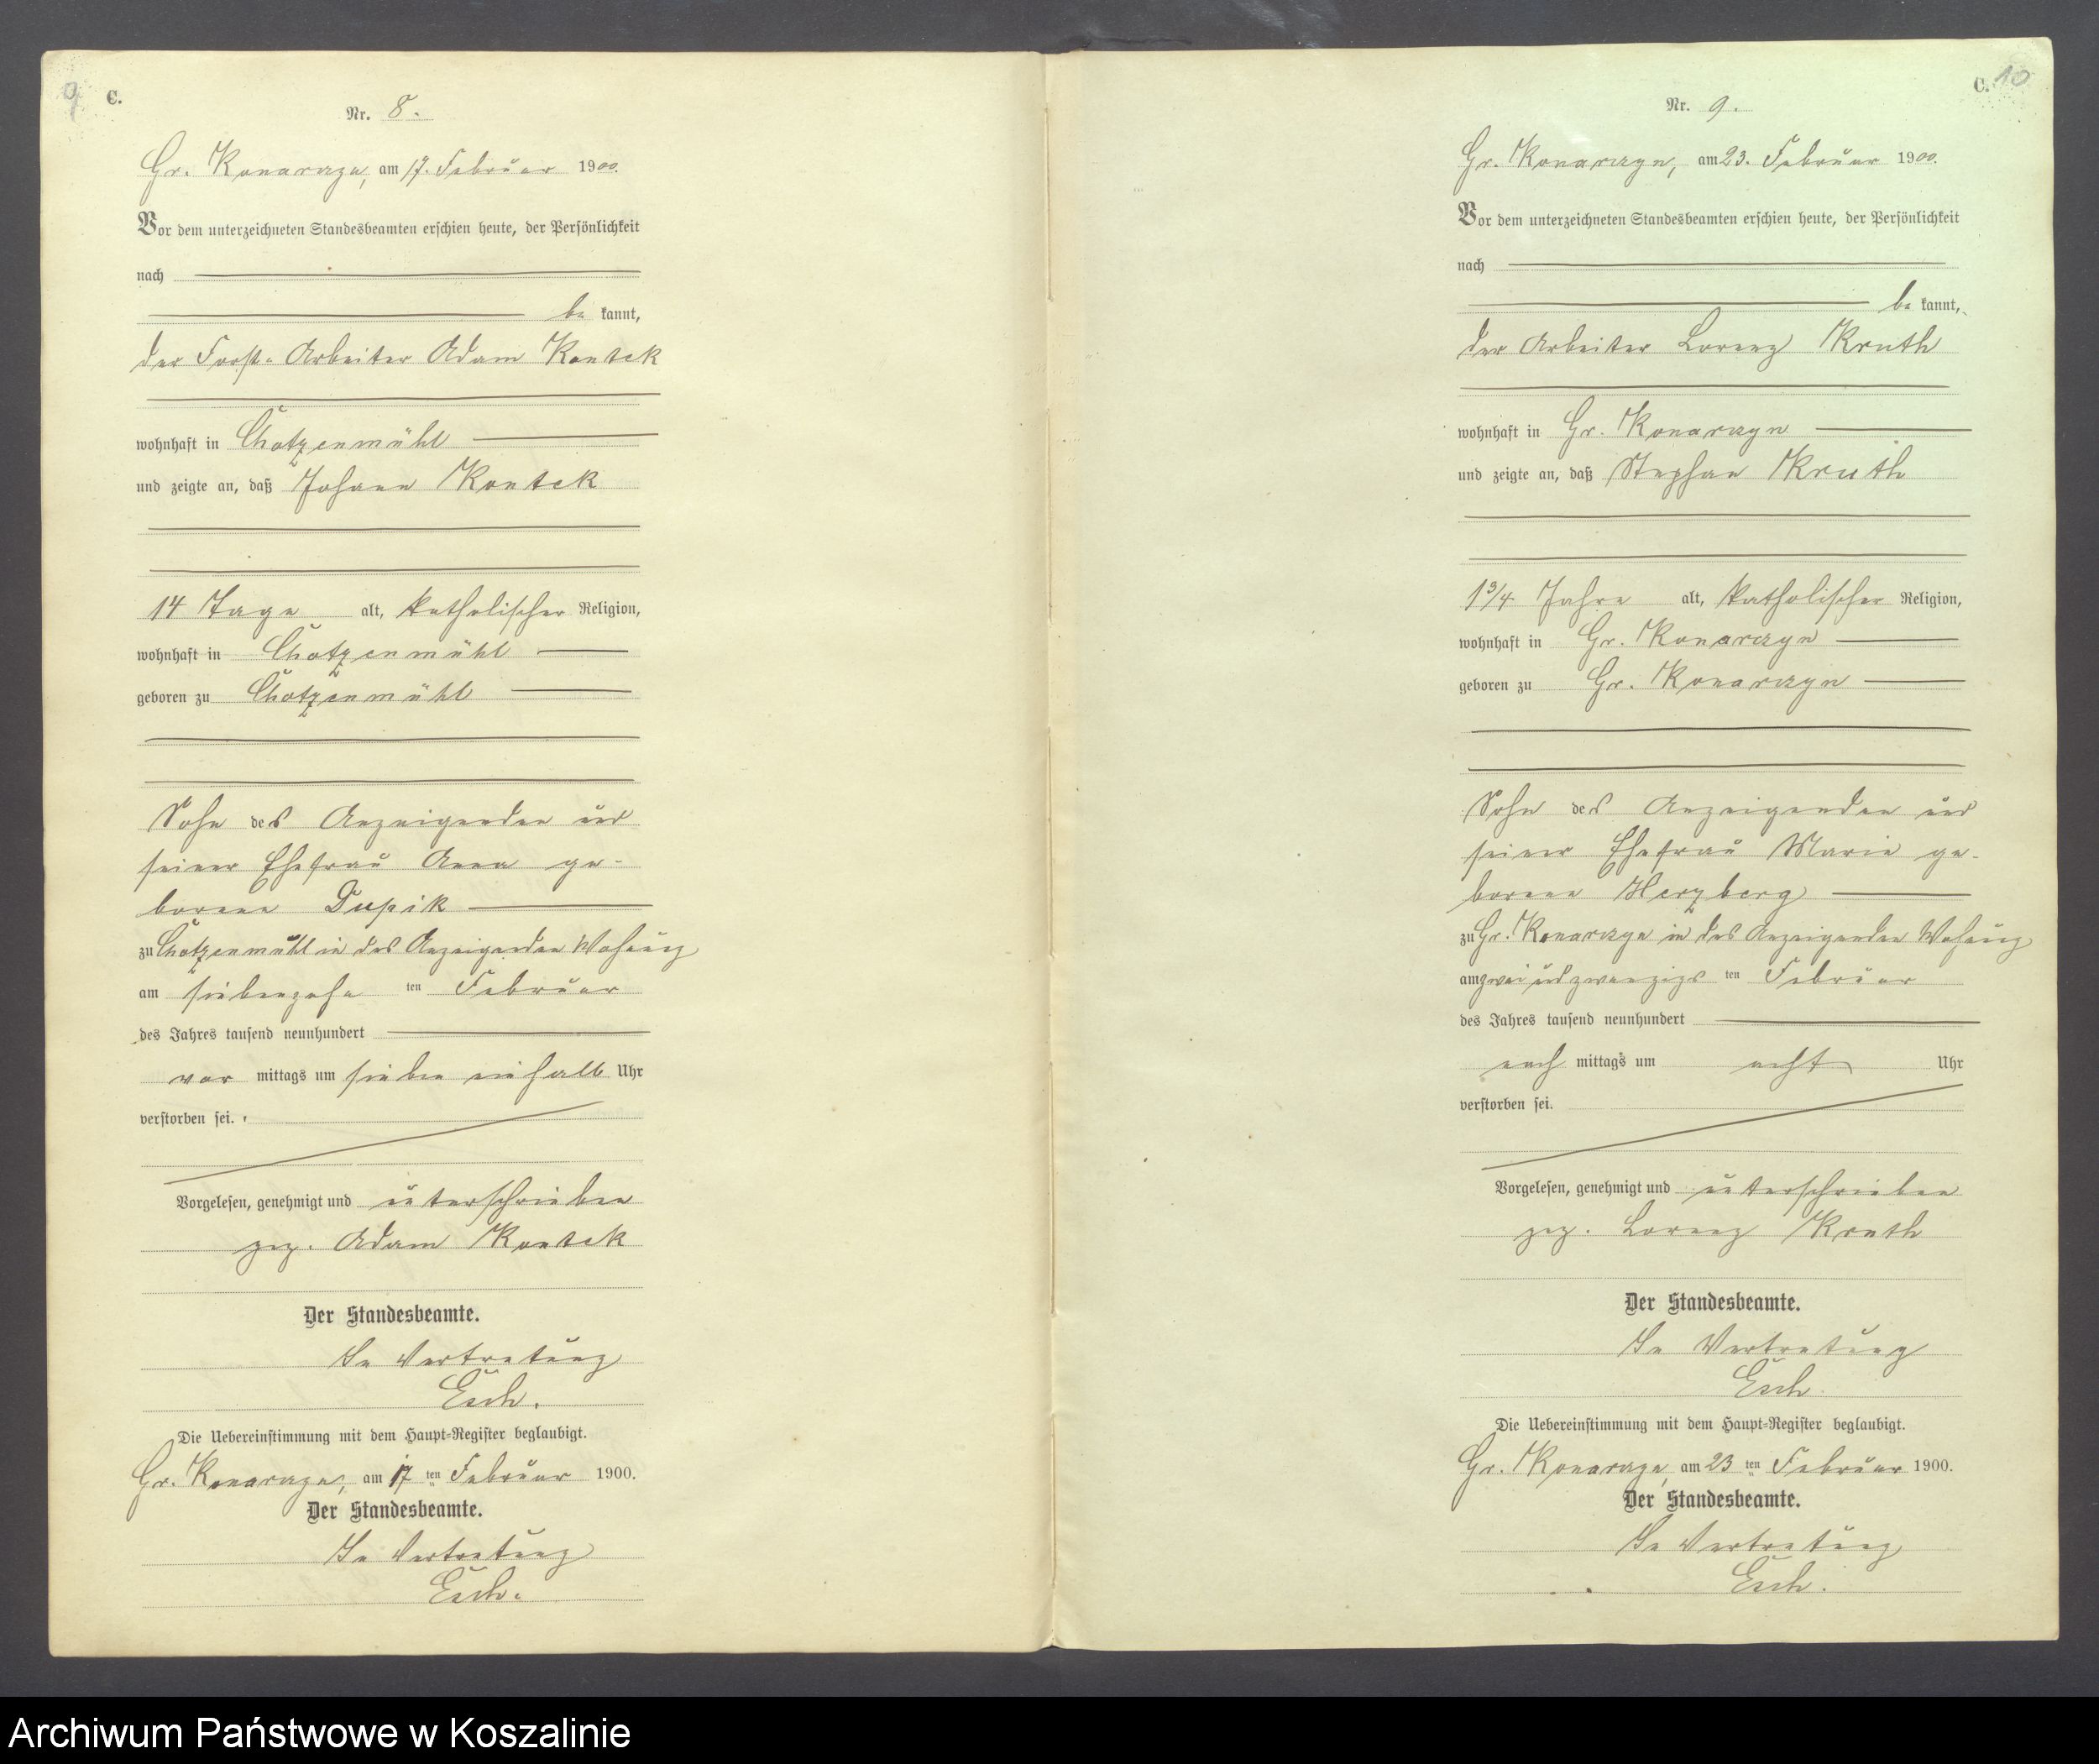 9
C.
Nr. 8.
Gr. Konarczyn, am 17. Februar 1900.
Vor dem unterzeichneten Standesbeamten erschien heute, der Persönlichkeit
nach
be kannt,
der Forst-Arbeiter Adam Kontek
wohnhaft in Chotzenmühl
und zeigte an, daß Johann Kontek
14 Tage alt, katholischer Religion,
wohnhaft in Chotzenmühl
geboren zu Chotzenmühl
Sohn des Anzeigenden und
seiner Ehefrau Anna ge-
borene
zu Chotzenmühl in des Anzeigenden Wohnung
am siebenzehn ten Februar
des Jahres tausend neunhundert
vor mittags um sieben einhalb Uhr
verstorben sei.
Vorgelesen, genehmigt und unterschrieben
gez. Adam Kontek
Der Standesbeamte.
In Vertretung
Esch.
Die Uebereinstimmung mit dem Haupt-Register beglaubigt.
Gr. Konarczyn, am 17 ten Februar 1900.
Der Standesbeamte.
In Vertretung
Esch.
C. 10
Nr. 9.
Gr. Konarczyn, am 23. Februar 1900.
Vor dem unterzeichneten Standesbeamten erschien heute, der Persönlichkeit
nach
be kannt,
der Arbeiter Lorenz Kruth
wohnhaft in Gr. Konarczyn
und zeigte an, daß Stephan Kruth
1 3/4 Jahre alt, katholischer Religion,
wohnhaft in Gr. Konarczyn
geboren zu Gr. Konarczyn
Sohn des Anzeigenden und
seiner Ehefrau Marie ge-
borene Herzberg
zu Gr. Konarczyn in des Anzeigenden Wohnung
am zwei und zwanzigs ten Februar
des Jahres tausend neunhundert
nach mittags um acht Uhr
verstorben sei.
Vorgelesen, genehmigt und unterschrieben
gez. Lorenz Kruth
Der Standesbeamte.
In Vertretung
Esch.
Die Uebereinstimmung mit dem Haupt-Register beglaubigt.
Gr. Konarczyn, am 23 ten Februar 1900.
Der Standesbeamte.
In Vertretung
Esch.
Archiwum Państwowe w Koszalinie